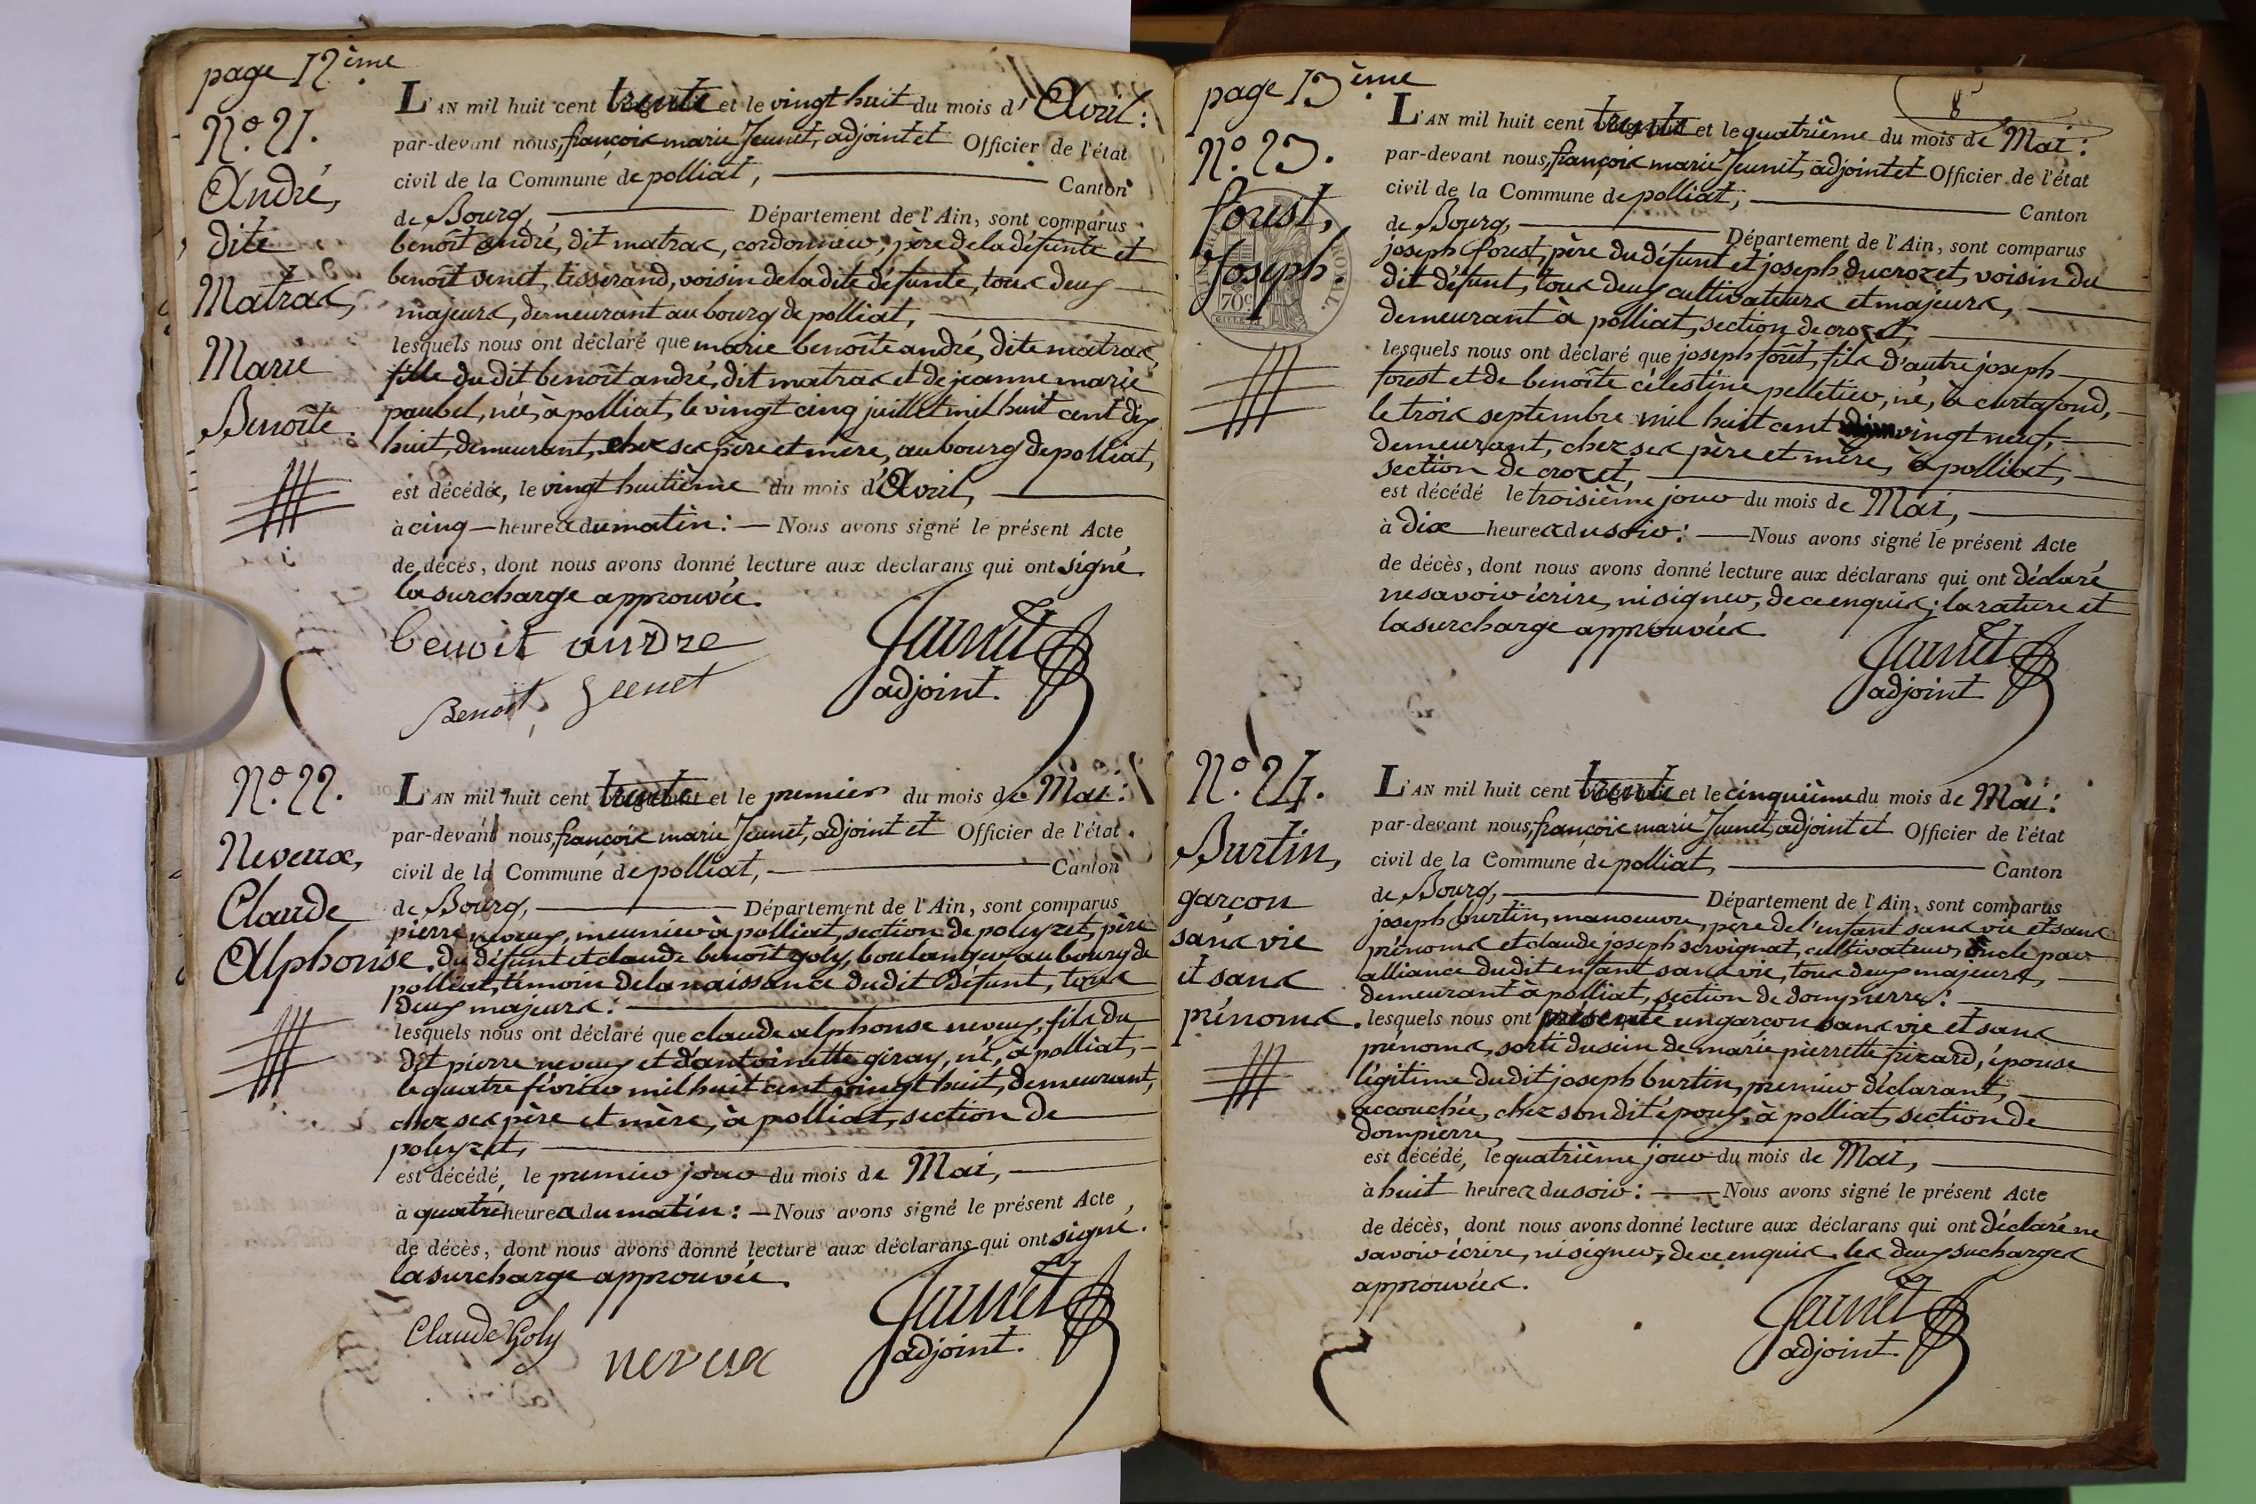 page 12ème
N.° 21.
André,
dite
Matras,
Marie
Benoîte.
L'AN mil huit cent trente et le vingt huit du mois d'Avril:
par-devant nous, françois marie Jeunet, adjoint et Officier de l'état
civil de la Commune de polliat, Canton
de Bourg, Département de l'Ain, sont comparus
benoît andré, dit matras, cordonnier, père de la défunte et
benoît venet, tisserand, voisin de la dite défunte, tous deux
majeurs, demeurant au bourg de polliat,
lesquels nous ont déclaré que marie benoîte andré, dite matras,
fille du dit benoît andré, dit matras et de jeanne marie
paubel, née, à polliat, le vingt cinq juillet mil huit cent dix
huit, demeurant, chez ses père et mère, au bourg de polliat,
est décédée, le vingt huitième du mois d'Avril,
à cinq heures du matin: Nous avons signé le présent Acte
de décès, dont nous avons donné lecture aux déclarans qui ont signé.
la surcharge approuvée.
benoit andre
Benoît, venet
Jeunet
adjoint.
N.° 22.
Neveux,
Claude
Alphonse.
L'AN mil huit cent trente et le premier du mois de Mai:
par-devant nous, françois marie Jeunet, adjoint et Officier de l'état
civil de la Commune de polliat, Canton
de Bourg, Département de l'Ain, sont comparus
pierre neveux, meunier à polliat, section de poleyzet, père
du défunt et claude benoît goly, boulanger au bourg de
polliat, témoin de la naissance du dit défunt, tous
deux majeurs:
lesquels nous ont déclaré que claude alphonse neveux, fils du
dit pierre neveux et d'antoinette giray, né, à polliat,
le quatre février mil huit cent vingt huit, demeurant,
chez ses père et mère, à polliat, section de
poleyzet,
est décédé, le premier jour du mois de Mai,
à quatre heures du matin: Nous avons signé le présent Acte
de décès, dont nous avons donné lecture aux déclarans qui ont signé.
la surcharge approuvée.
Claude Goly
neveux
Jeunet
adjoint.
page 13ème
8
N.° 23.
forest,
Joseph
70c
L'AN mil huit cent trente et le quatrième du mois de Mai:
par-devant nous, françois marie Jeunet, adjoint et Officier de l'état
civil de la Commune de polliat, Canton
de Bourg, Département de l'Ain, sont comparus
joseph forest, père du défunt et joseph ducrozet, voisin du
dit défunt, tous deux cultivateurs et majeurs,
demeurant à polliat, section de crozet,
lesquels nous ont déclaré que joseph forêt, fils d'autre joseph
forest et de benoîte célestine pelletier, né, à curtafond,
le trois septembre mil huit cent vingt neuf,
demeurant, chez ses père et mère, à polliat,
section de crozet,
est décédé le troisième jour du mois de Mai,
à dix heures du soir: Nous avons signé le présent Acte
de décès, dont nous avons donné lecture aux déclarans qui ont déclaré
ne savoir écrire, ni signer, de ce enquis; la rature et
la surcharge approuvées.
Jeunet
adjoint
N.° 24.
Burtin,
garçon
sans vie
et sans
prénoms.
L'AN mil huit cent trente et le cinquième du mois de Mai:
par-devant nous, françois marie Jeunet, adjoint et Officier de l'état
civil de la Commune de polliat, Canton
de Bourg, Département de l'Ain, sont comparus
joseph burtin, manoeuvre, père de l'enfant sans vie et sans
prénoms et claude joseph servignat, cultivateur, oncle par
alliance du dit enfant sans vie, tous deux majeurs,
demeurant à polliat, section de dompierre:
lesquels nous ont présenté un garçon sans vie et sans
prénoms, sorti du sein de marie pierrette fizard, épouse
légitime du dit joseph burtin, premier déclarant,
accouchée, chez son dit époux, à polliat, section de
dompierre,
est décédé, le quatrième jour du mois de Mai,
à huit heures du soir: Nous avons signé le présent Acte
de décès, dont nous avons donné lecture aux déclarans qui ont déclaré ne
savoir écrire, ni signer, de ce enquis. les deux sucharges
approuvées.
Jeunet
adjoint.